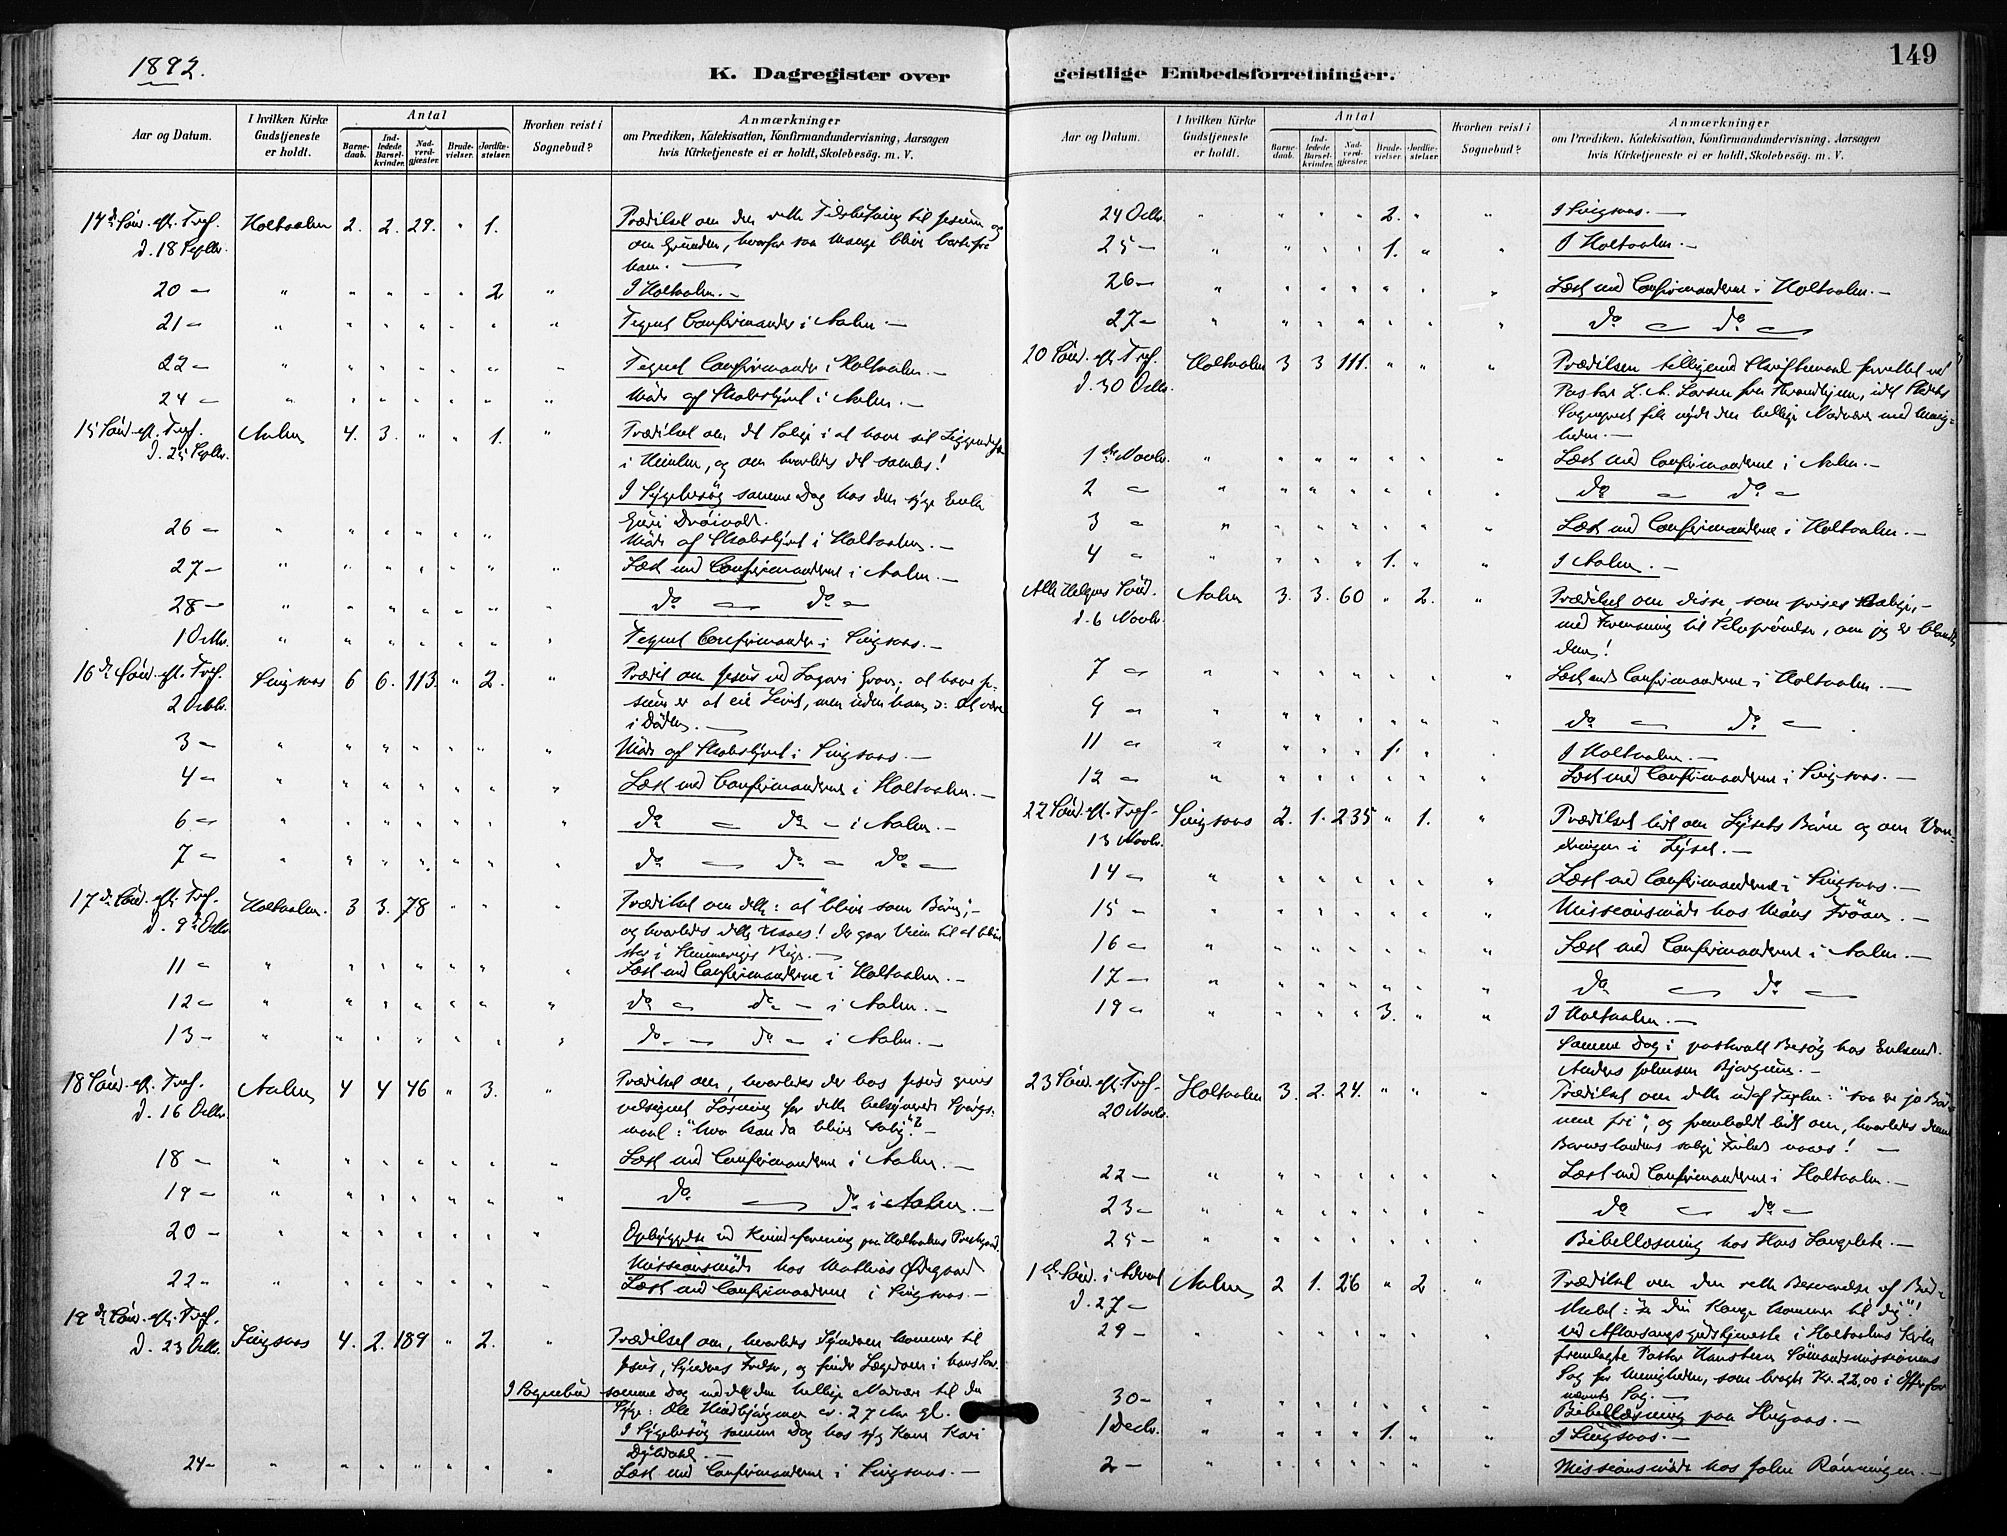 1892.
K. Dagregister over
Aar og Datum.
I hvilken Kirke Gudstjeneste er holdt.
Antal
Barnedaab.
Indledede Barselkvinder.
Nadverdgjester.
Brudevielser.
Jordfæstelser.
Hvorhen reist i Sognebud?
Anmærkninger
om Prædiken, Katekisation, Konfirmandundervisning, Aarsagen
hvis Kirketjeneste ei er holdt, Skolebesög. m. V.
14de Sönd. eft. Tref. Holtaalen 2. 2. 29. " 1. Prædiket om den rette til Jesum og
d. 18 Septbr. om Grunden, hvorfor saa Mange blive borte fra
ham. —
20 — " " " " " 2 " I Holtaalen. —
21 — " " " " " " " Tegnet Confirmander i Aalen —
22 — " " " " " " " Tegnet Confirmander i Holtaalen. —
24 — " " " " " " " Möde af Skolestyret i Aalen. —
15 Sönd. eft. Tref. Aalen 4. 3. " " 1. " Prædiket om det Salige i at have sit
d. 25 Septbr. i Himlen, og om hvorledes det samles!
I Sygebesög samme Dag hos den syge Enke
Guri
26 — " " " " " " Möde af Skolestyret i Holtaalen. —
27 — " " " " " " " Læst med Confirmanderne i Aalen. —
28 — " " " " " " " do — do —
1 Octbr. " " " " " " " Tegnet Confirmander i Singsaas. —
16de Sönd. eft. Tref. Singsaas 6 6. 113. " 2. " Prædik. om Jesus ved Lazari Grav: at have Je-
2 Octbr. sum er at eie Livet, men uden ham o: at være
i Döden. —
3 — " " " " " " " Möde af Skolestyret i Singsaas. —
4 — " " " " " " " Læst med Confirmanderne i Holtaalen. —
6 — " " " " " " " do — do — i Aalen. —
7 — " " " " " " " do — do — do —
17de Sönd. eft. Tref. Holtaalen. 3 3. 78 " " " Prædiket om dette: at "blive som Börn", —
d. 9de Octbr. og hvorledes dette naaes! der gaar Veien til at blive
i Himmeriges Rige. —
11 — " " " " " " " Læst med Confirmanderne i Holtaalen. —
12 — " " " " " " " do — do — i Aalen. —
13 — " " " " " " " do — do — i Aalen. —
18 Sönd. eft. Tref. Aalen 4 4 46 " 3. " Prædiket om, hvorledes der hos Jesus gives
d. 16 Octbr. velsignet Lösning for dette Spörgs-
maal: "hvo kan da blive salig"? —
18 — " " " " " " " Læst med Confirmanderne i Aalen. —
19 — " " " " " " " do — do i Aalen. —
20 — " " " " " " " Opbyggelse ved Kvindeforening paa Holtaalens Prestegaard.
Missionsmöde hos Mathias Ödegaard
22 — " " " " " " " Læst med Confirmanderne i Singsaas. —
19de Sönd. eft. Tref.
d. 23 Octbr. Singsaas 4. 2. 189 " 2. " Prædiket om, hvorledes Synderen kommer til
Jesus, Syndres Frelser, og finder Lægedom i hans
I Sognebud samme Dag med den hellige Nadvere til den
Syge: Ole 27 Aar gl.
I Sygebesög samme Dag hos syg Kone Kari
24 — " " " " " " " Læst med Confirmanderne i Singsaas. —
geistlige Embedsforretninger.
149
Aar og Datum.
I hvilken Kirke Gudstjeneste er holdt.
Antal
Barnedaab.
Indledede Barselkvinder.
Nadverdgjester.
Brudevielser.
Jordfæstelser.
Hvorhen reist i Sognebud?
Anmærkninger
om Prædiken, Katekisation, Konfirmandundervisning, Aarsagen
hvis Kirketjeneste ei er holdt, Skolebesög. m. V.
24 Octbr. " " " " 2. " " I Singsaas. —
25 — " " " " 1. " " I Holtaalen. —
26 — " " " " " " " Læst med Confirmanderne i Holtaalen. —
27 — " " " " " " " do — do —
20 Sönd. eft. Tref. Holtaalen 3 3 111. " " " Prædiken tilligemed Skriftemaal forrettet ved
d. 30 Octbr. Pastor L. A. Larsen fra Trondhjem, idet Stedets
Sogneprest fik nyde den hellige Nadvere med Menig-
heden. —
1ste Novbr. " " " " " " " Læst med Confirmanderne i Aalen. —
2 — " " " " " " " do — do —
3 — " " " " " " " Læst med Confirmanderne i Holtaalen. —
4 — " " " " 1. " " I Aalen. —
Alle Helgens Sönd. Aalen 3. 3. 60 " 2. " Prædiket om disse, som prises salige, —
d. 6 Novbr. med til Selvprövelse, om jeg er blandt
dem!
7 — " " " " " " " Læst med Confirmanderne i Holtaalen. —
9 — " " " " " " " do — do —
11 — " " " " 1. " " I Holtaalen. —
12 — " " " " " " " Læst med Confirmanderne i Singsaas. —
22 Sönd. eft. Tref. Singsaas 2. 1. 235 " 1. " Prædiket lidt om Lysets Börn og om Van-
13 Novbr. dringen i Lyset. —
14 — " " " " " " " Læst med Confirmanderne i Singsaas. —
15 — " " " " " " " Missionsmöde hos Mons Tröen. —
16 — " " " " " " " Læst med Confirmanderne i Aalen. —
17 — " " " " " " " do — do —
19 — " " " " 3. " " I Holtaalen. —
Samme Dag i Besög hos Enkemd.
Anders Johnsen —
23 Sönd. eft. Tref. Holtaalen 3. 2. 24. " " " Prædiket om dette udaf Texten: "saa er jo Bör-
20 Novbr. nene fri", og fremholdt lidt om, hvorledes denne
Barnestandens salige Frihed naaes! —
22 — " " " " " " " Læst med Confirmanderne i Holtaalen. —
23 — " " " " " " " do — do —
25 — " " " " " " " Bibellæsning hos Hans Langlete. —
1ste Sönd. i Advent Aalen 2 1. 26 " 2 " Prædiket om den rette Besvarelse af Bud-
d. 27 — skabet: "Se din Konge kommer til dig"!
29 — " " " " " " " Ved Aftensangsgudstjeneste i Holtaalens Kirke
fremlagte Pastor Hansteen Sömandsmissionens
Sag for Menigheden, som bragte Kr. 22,00 i Offer for
nævnte Sag. —
30 — " " " " " " " Bibellæsning paa Hugaas. —
1 Decbr. " " " " 1. " " I Singsaas. —
2 — " " " " " " " Missionsmöde hos John Rönningen. —